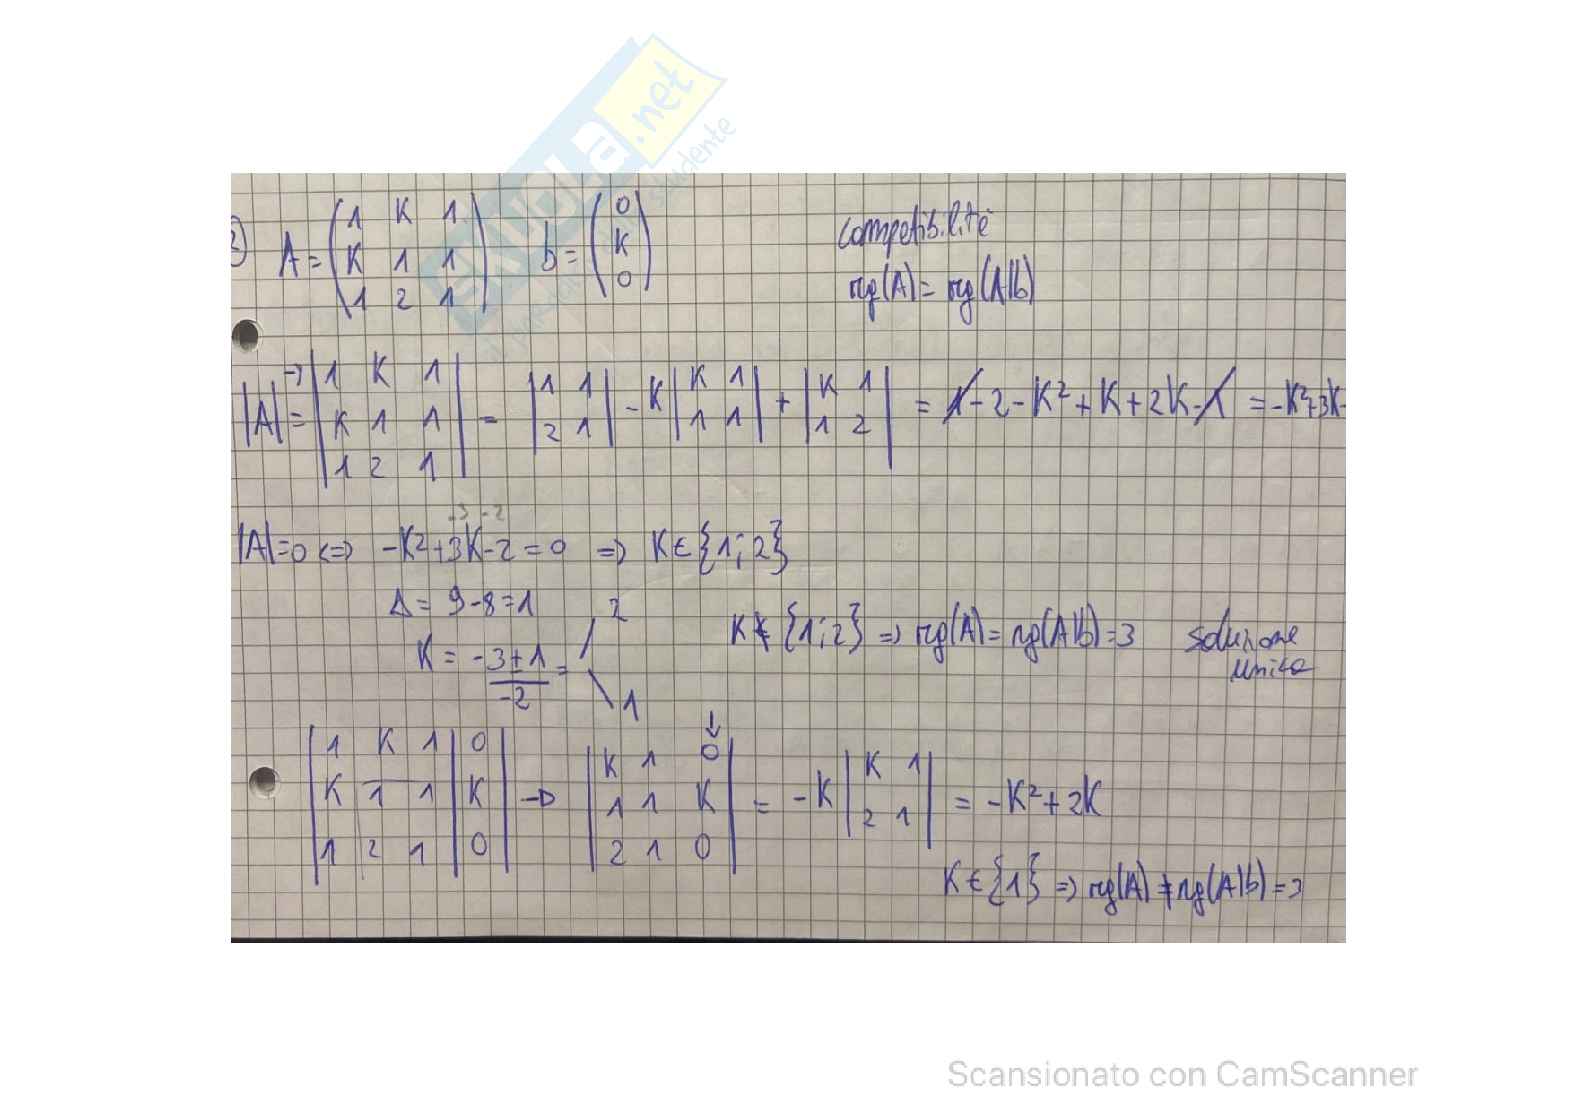 SKUOLA.net
2) A = (1 K 1 / K 1 1 / 1 2 1) b = (0 / K / 0) compatibilità
rg(A) = rg(A|b)
|A| = |1 K 1 / K 1 1 / 1 2 1| = |1 1 / 2 1| - K |K 1 / 1 1| + |K 1 / 1 2| = 1 - 2 - K² + K + 2K - 1 = -K² + 3K -
|A| = 0 <=> -K² + 3K - 2 = 0 => K ∈ {1; 2}
Δ = 9 - 8 = 1
K = (-3 ± 1)/(-2) = 2
1
K ∉ {1; 2} => rg(A) = rg(A|b) = 3 soluzione
unica
|1 K 1 | 0 / K 1 1 | K / 1 2 1 | 0| → |K 1 0 / 1 1 K / 2 1 0| = -K |K 1 / 2 1| = -K² + 2K
K ∈ {1} => rg(A) ≠ rg(A|b) = 3
Scansionato con CamScanner